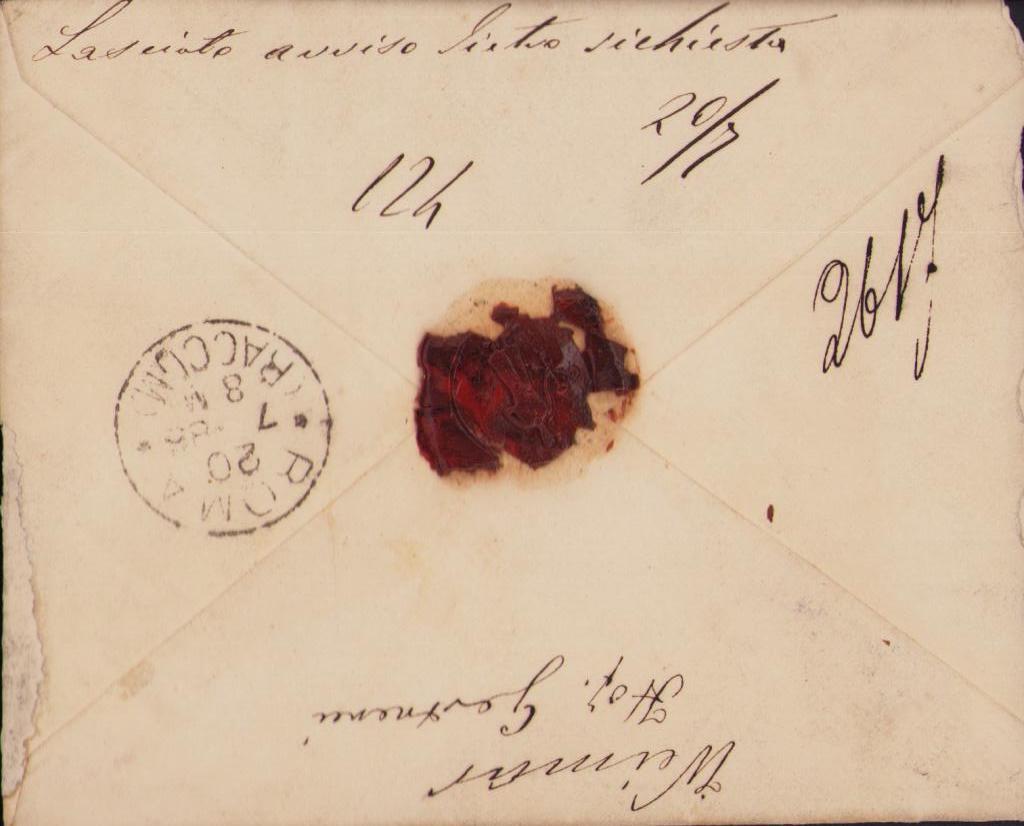 Lasciato avviso dietro richiesta
20/7
124
261
ROMA
20
7
8 M
(RACCOM)
Weimar
Hof. Gärtnerei